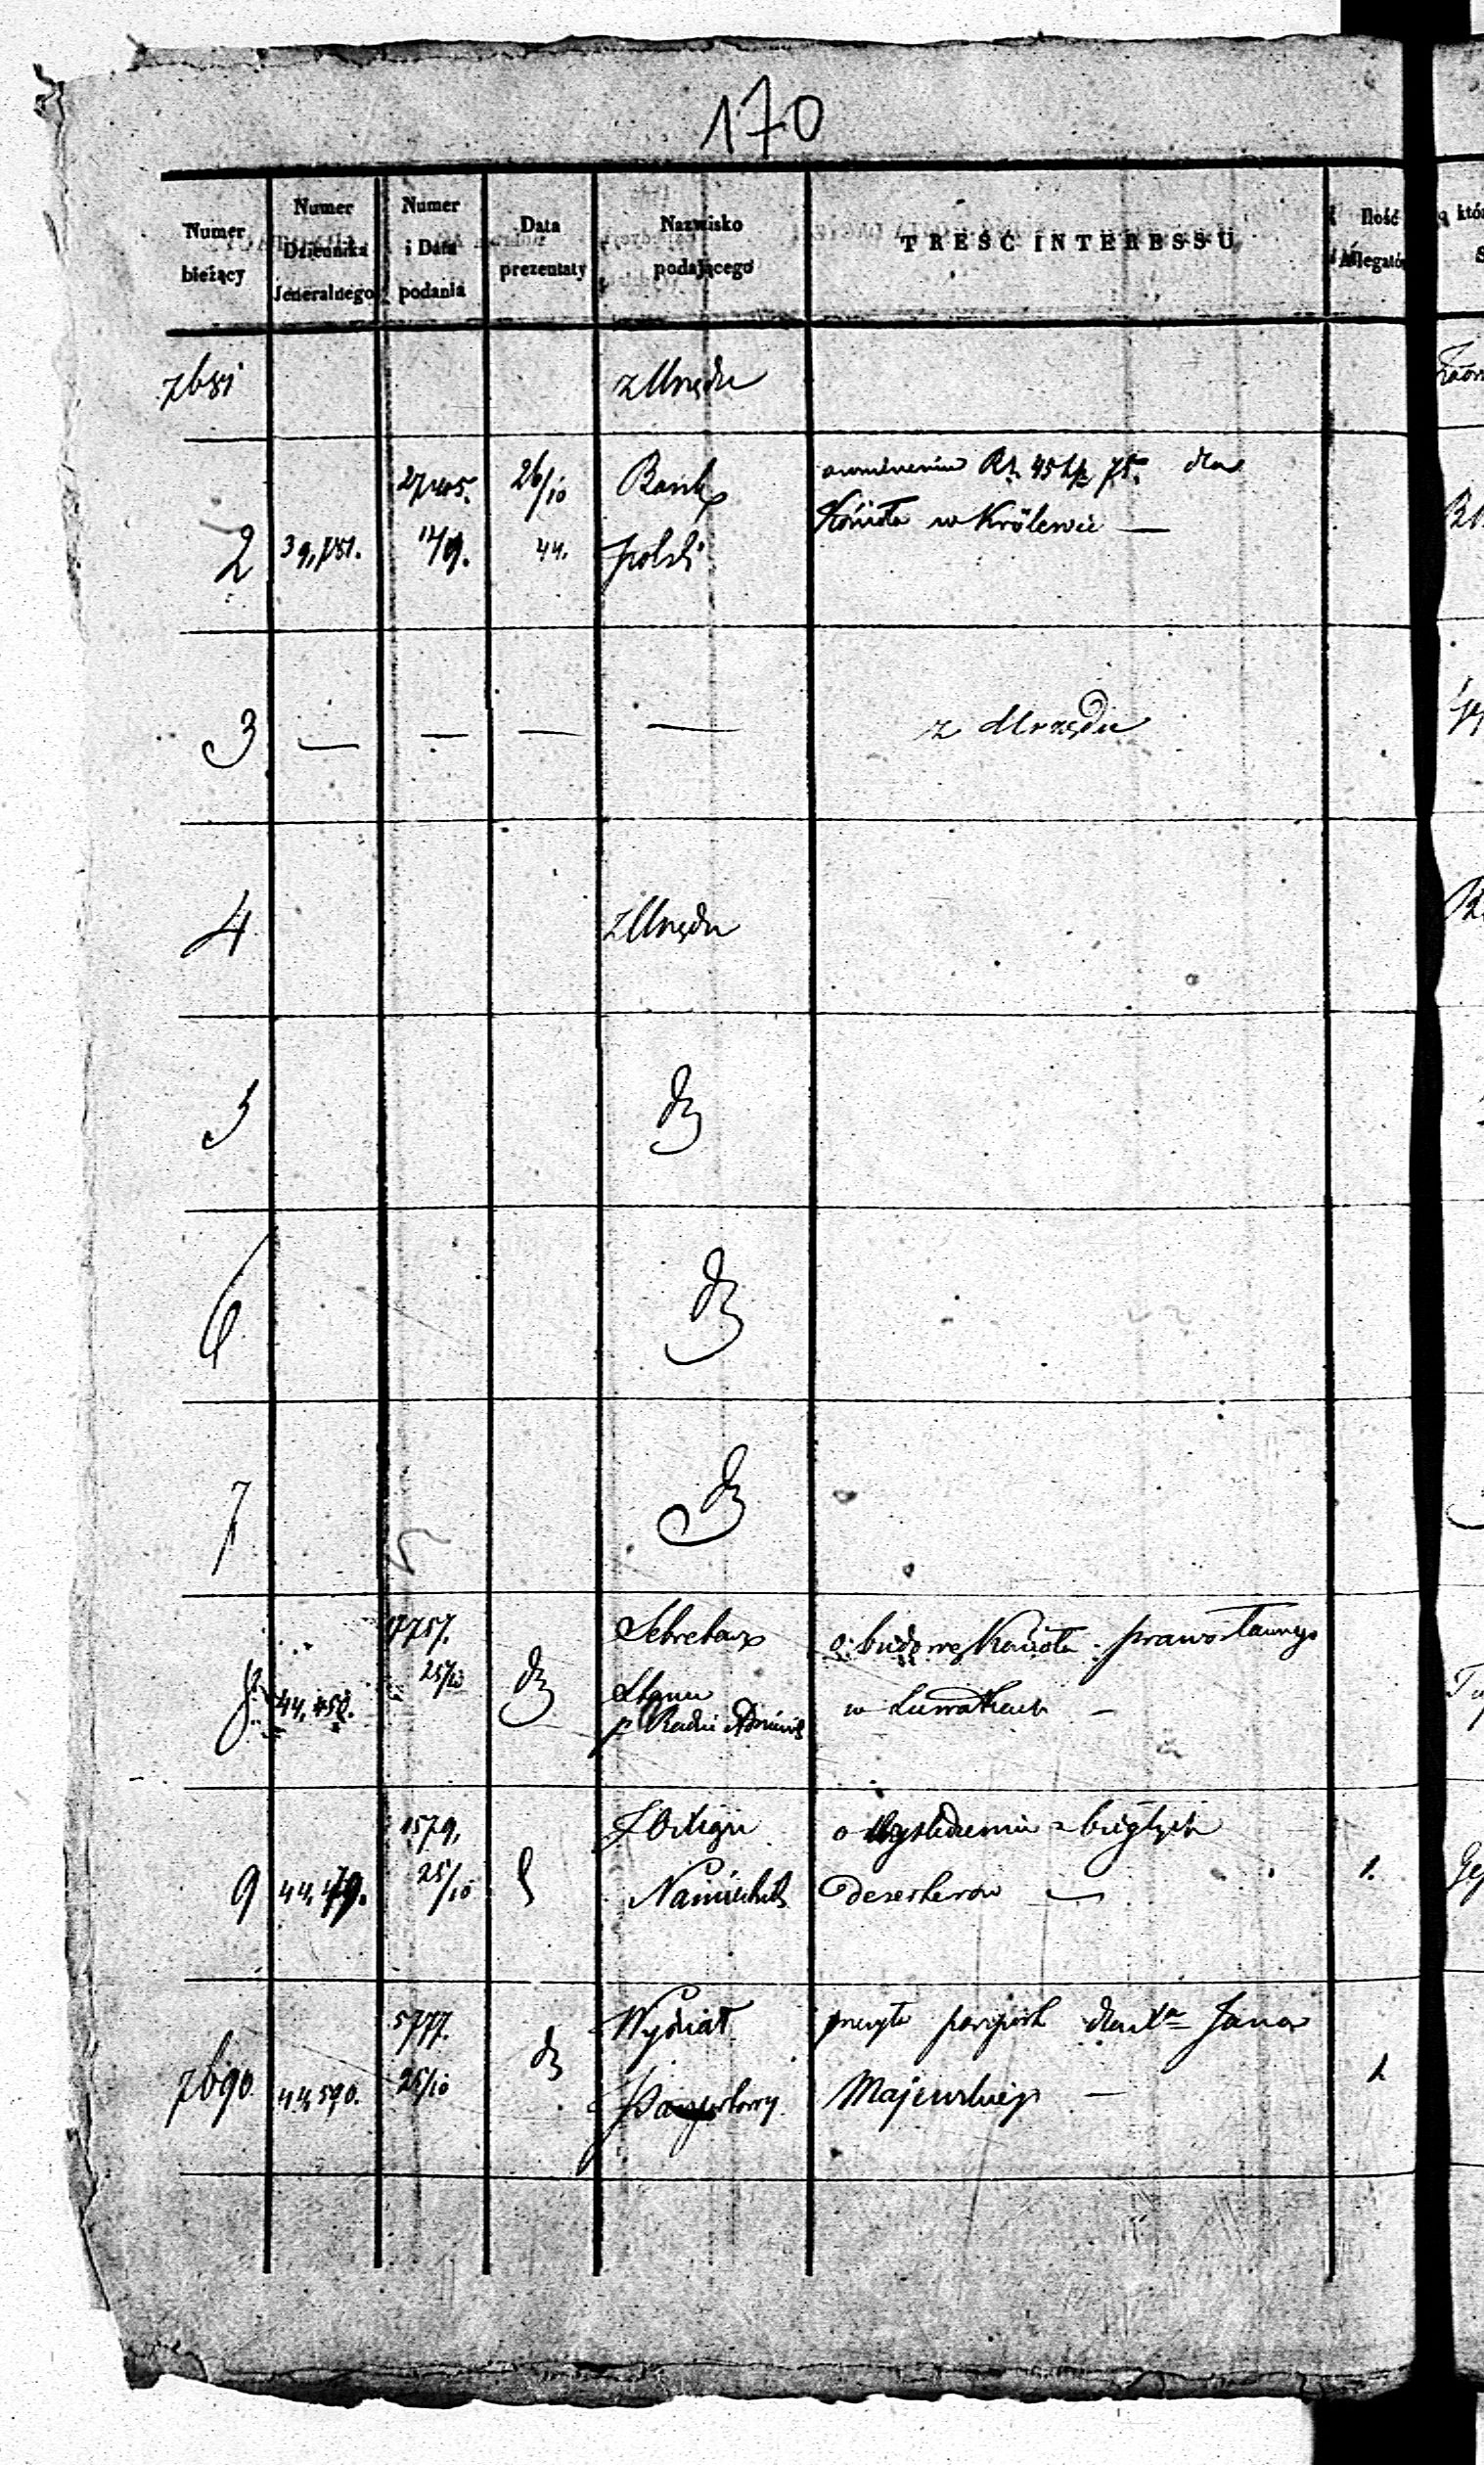 170
Numer bieżący
Numer Dziennika Jeneralnego
Numer i Data podania
Data prezentaty
Nazwisko podającego
TREŚĆ INTERESSU
Ilość Allegatów
7681 z Urzędu
2 27405. 26/10 Bank Rs. 45 k. 75. dla
12/9. 44. polski Kościoła w Królewie —
3 — — — — z Urzędu
4 z Urzędu
5 dto
6 dto
7 dto
8 44,452. 17757. 25/10 dto Sekretarz Stanu p. Radzie Adminis o budowę Kościoła prawosławnego
w Suwałkach —
9 44,479. 1579. 25/10 Namiestnik o wyśledzenie zbiegłych
Deserterów — 1.
7690 44,590. 5777. 25/10 dto Wydział Paszportowy przesyła paszport dla Xa Jana
Majewskiego — 1